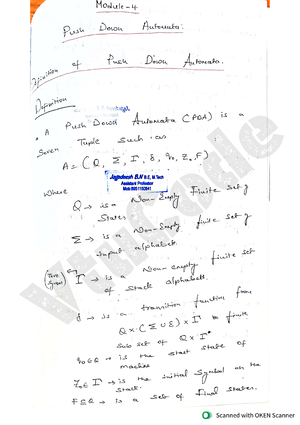 Module-4
Push Down Automata:
Definition of Push Down Automata.
Definition
A Push Down Automata (PDA) is a
Seven Tuple such as
A = (Q, Σ, Γ, δ, q0, Z0, F)
Jagadeesh B.N B.E, M.Tech
Assistant Professor
Where
Q → is a Non-Empty Finite set of
States
Σ → is a Non-Empty finite set of
input alphabets.
Γ → is a Non empty finite set
of stack alphabets.
δ → is a transition function from
Q × (Σ ∪ ε) × Γ to finite
sub set of Q × Γ*
q0 ∈ Q → is the start state of
machine
Z0 ∈ Γ → is the initial symbol on the
stack.
F ⊆ Q → is a set of final states.
VTUCode
Scanned with OKEN Scanner